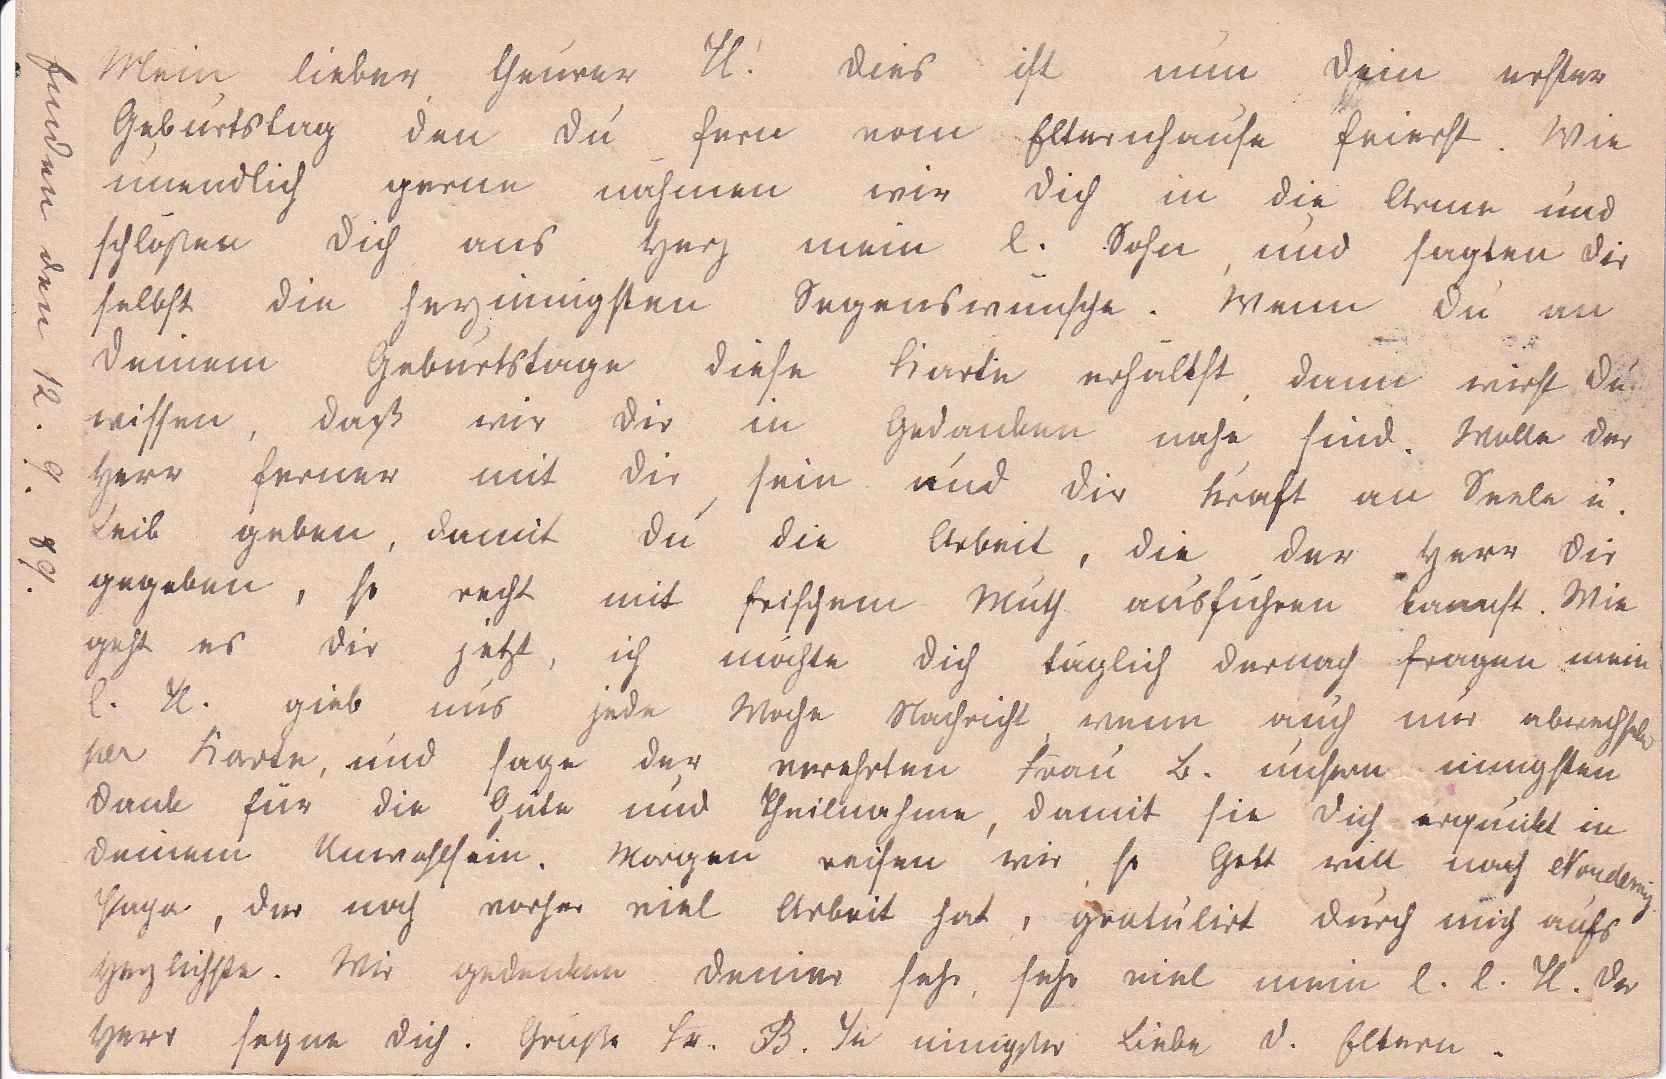 Mein lieber, theurer H! dies ist nun Dein erster
Geburtstag den Du fern vom Elternhause feierst. Wie
unendlich gerne nähmen wir Dich in die Arme und
schlößen Dich ans Herz mein l. Sohn, und sagten Dir
selbst die herzinnigsten Segenswünsche. Wenn Du an
Deinem Geburtstage diese Karte erhältst, dann wirst Du
wissen, daß wir Dir in Gedanken nahe sind. Wolle der
Herr ferner mit Dir sein und Dir Kraft an Seele u.
Leib geben, damit Du die Arbeit, die der Herr Dir
gegeben, so recht mit frischem Muth ausführen kannst. Wie
geht es Dir jetzt, ich möchte Dich täglich darnach fragen mein
l. H. gieb uns jede Woche Nachricht, wenn auch nur abwechselnd
per Karte, und sage der verehrten Frau B. unsern innigsten
Dank für die Güte und Theilnahme, damit sie Dich erquickt in
Deinem Unwohlsein. Morgen reisen wir so Gott will nach
Papa, der noch vorher viel Arbeit hat, gratulirt durch mich aufs
Herzlichste. Wir gedenken Deiner sehr, sehr viel mein l. l. H. Der
Herr segne Dich. Grüße Fr. B. In innigster Liebe d. Eltern.
den 12. 9. 89.